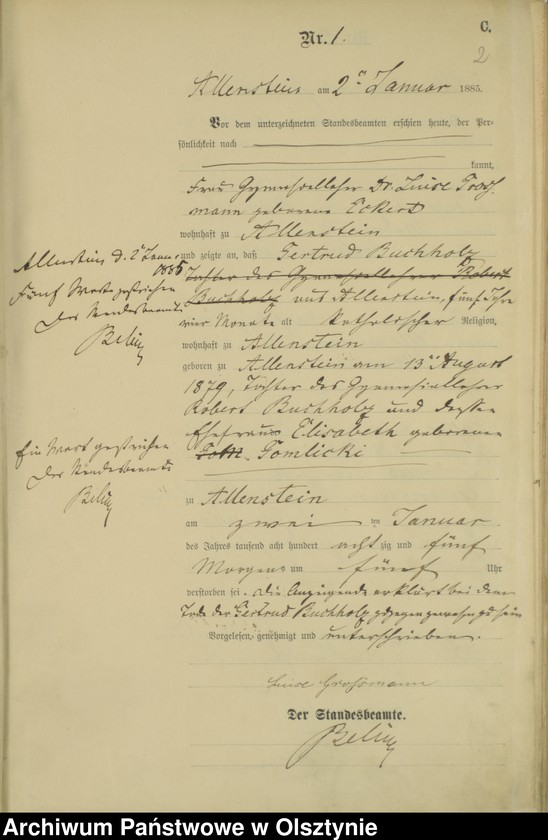 C.
Nr. 1.
2
Allenstein am 2ten Januar 1885.
Vor dem unterzeichneten Standesbeamten erschien heute, der Per-
sönlichkeit nach
kannt,
Frau Gymnasiallehrer Dr. Luise Gross-
mann geborene Eckert
wohnhaft zu Allenstein
und zeigte an, daß Gertrud Buchholz
Tochter des Gymnasiallehrers Robert
Buchholz aus Allenstein, fünf Jahre
vier Monate alt katholischer Religion,
wohnhaft zu Allenstein
geboren zu Allenstein am 13ten August
1879, Tochter des Gymnasiallehrer
Robert Buchholz und dessen
Ehefrau Elisabeth geborenen
Tomlicki
zu Allenstein
am zwei ten Januar
des Jahres tausend acht hundert acht zig und fünf
Morgens um fünf Uhr
verstorben sei. Die Anzeigende erklärt bei dem
Tode der Gertrud Buchholz zugegen gewesen zu sein
Vorgelesen, genehmigt und unterschrieben.
Luise Grossmann
Der Standesbeamte.
Allenstein d. 2t Januar
1885
Fünf Worte gestrichen
Der Standesbeamte
Ein Wort gestrichen
Der Standesbeamte
Archiwum Państwowe w Olsztynie